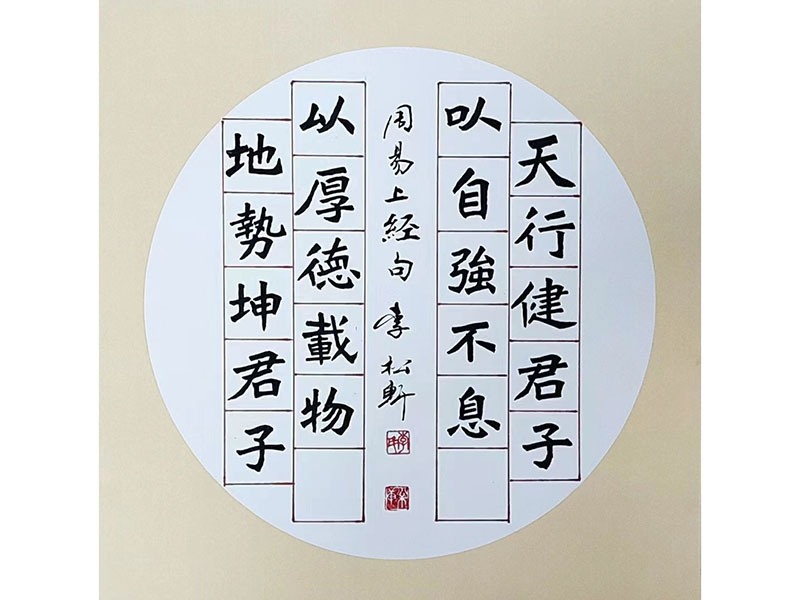 天行健君子
以自強不息
地勢坤君子
以厚徳載物
周易上経句 李松軒